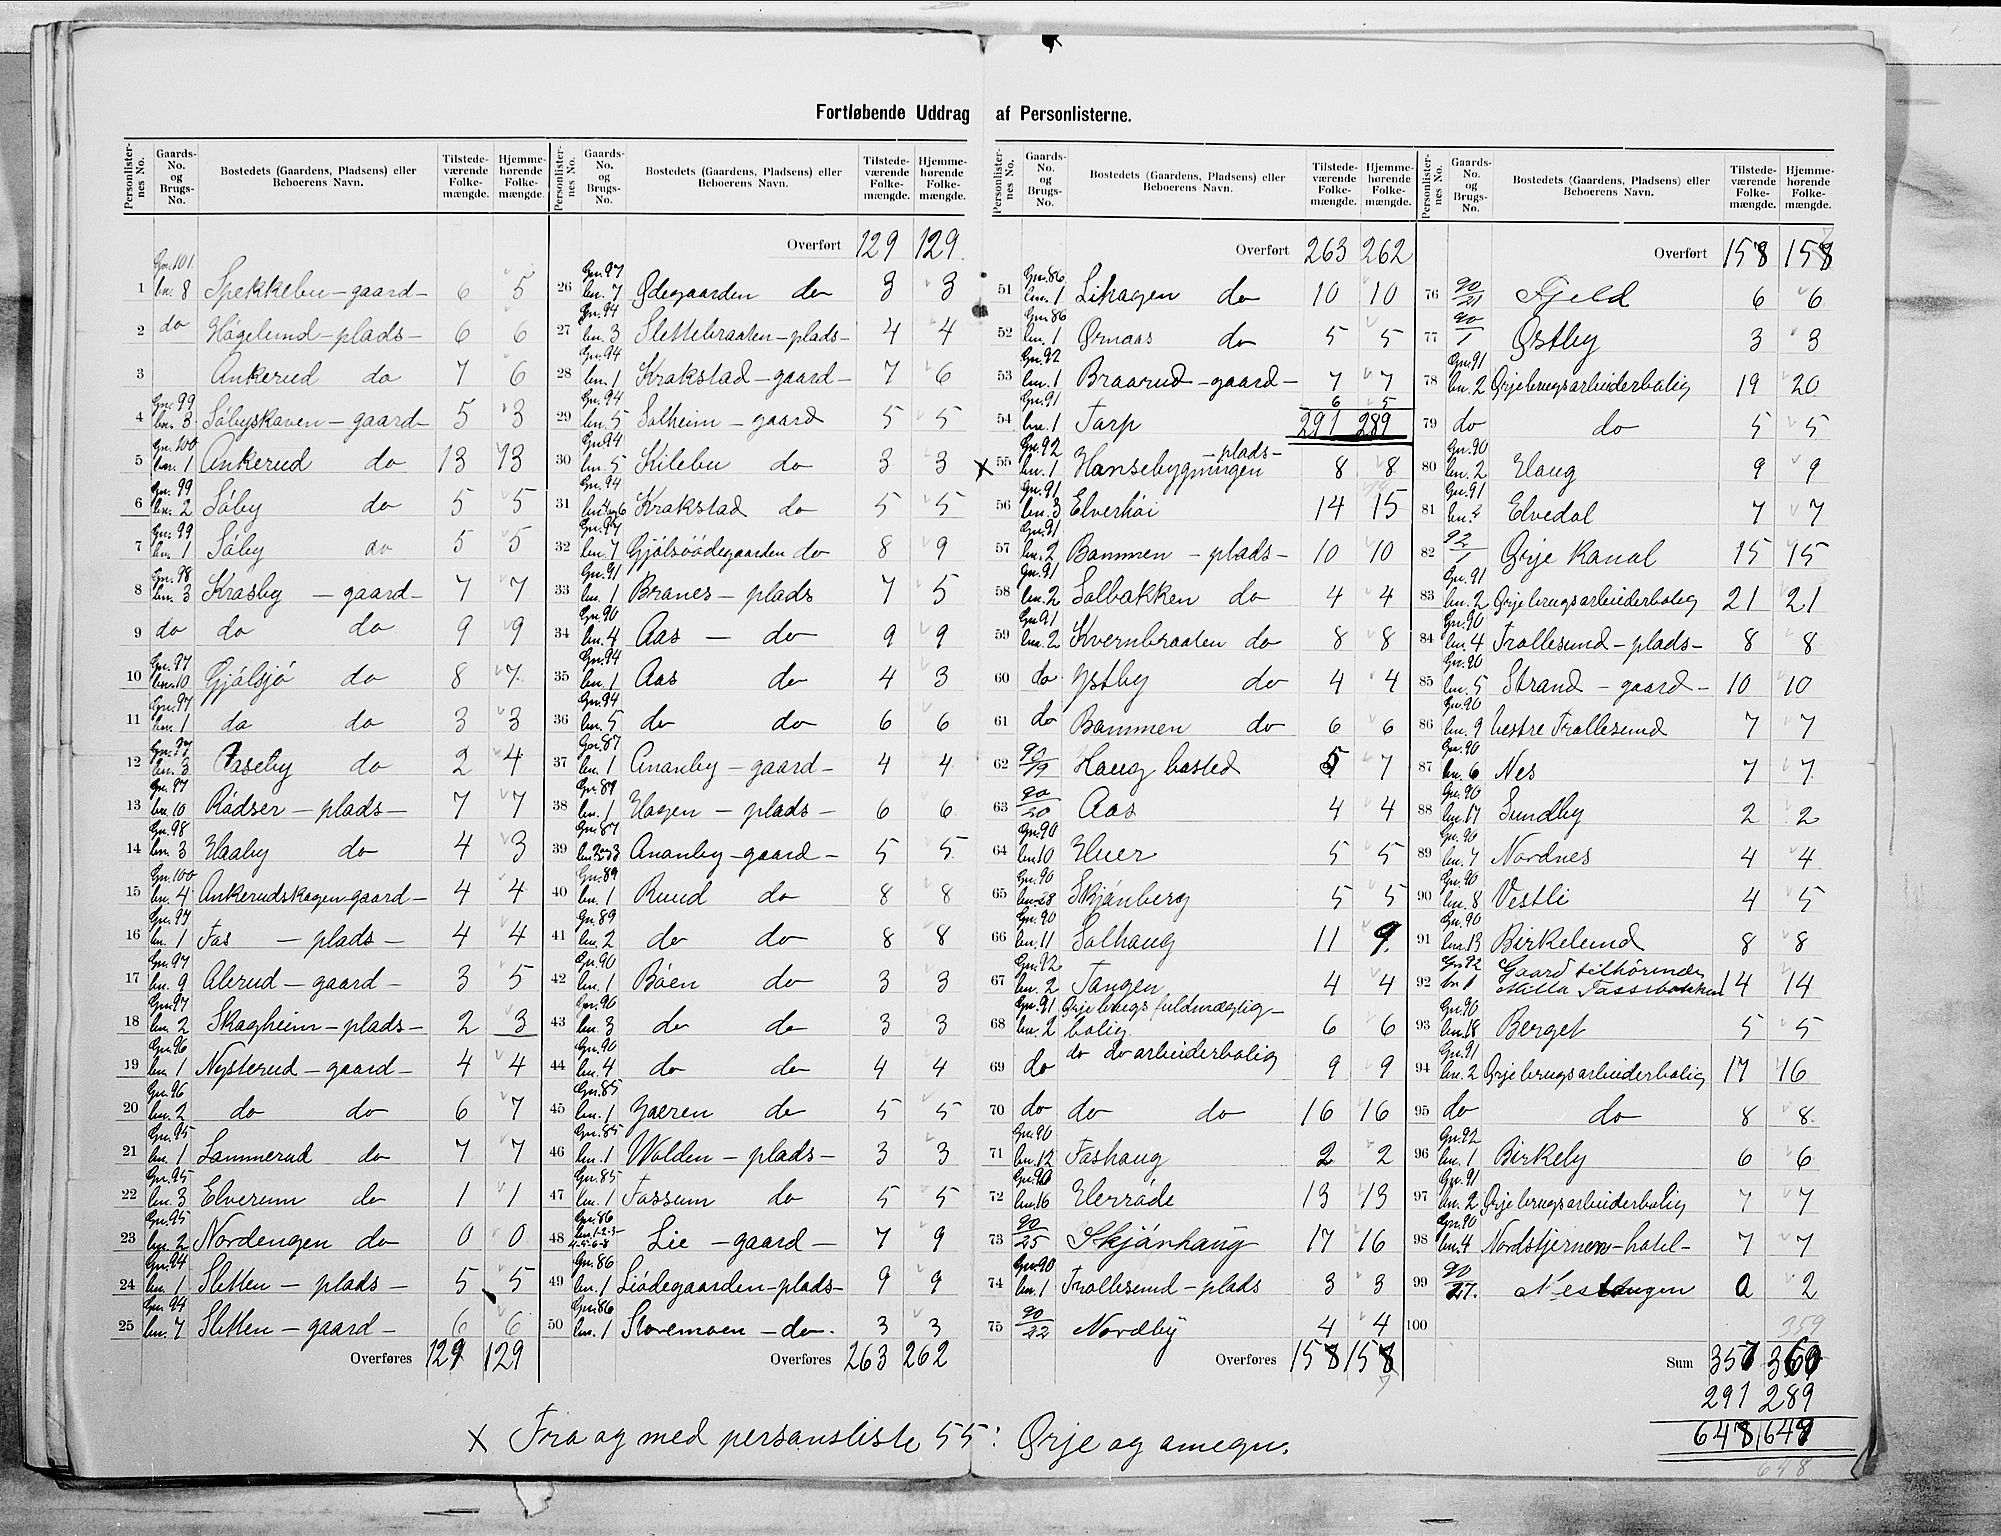 Fortløbende Uddrag af Personlisterne.
Personlisternes No. Gaards-No. og Brugs-No. Bostedets (Gaardens, Pladsens) eller Beboerens Navn. Tilstedeværende Folkemængde. Hjemmehørende Folkemængde.
1 Gn. 101 bn. 8 Spekkebu - gaard - 6 5
2 do Högelund - plads - 6 6
3 Ankerud do 7 6
4 Gn. 99 bn. 3 Söbyskaven - gaard - 5 3
5 Gn. 100 bn. 1 Ankerud do 13 13
6 Gn. 99 bn. 2 Söby do 5 5
7 Gn. 99 bn. 1 Söby do 5 5
8 Gn. 98 bn. 3 Krasby - gaard - 7 7
9 do do do 9 9
10 Gn. 97 bn. 10 Gjölsjö do 8 7
11 Gn. 97 bn. 1 do do 3 3
12 Gn. 97 bn. 3 Aaseby do 2 4
13 Gn. 97 bn. 10 Rödser - plads - 7 7
14 Gn. 98 bn. 3 Haaby do 4 3
15 Gn. 100 bn. 4 Ankerudskogen - gaard - 4 4
16 Gn. 97 bn. 1 Fos - plads - 4 4
17 Gn. 97 bn. 9 Alerud - gaard - 3 5
18 Gn. 97 bn. 2 Skogheim - plads - 2 3
19 Gn. 96 bn. 1 Nysterud - gaard - 4 4
20 Gn. 96 bn. 2 do do 6 7
21 Gn. 95 bn. 1 Lammerud do 7 7
22 Gn. 95 bn. 3 Elverum do 1 1
23 Gn. 95 bn. 2 Nordengen do 0 0
24 Gn. 94 bn. 1 Sletten - plads - 5 5
25 Gn. 94 bn. 7 Sletten - gaard - 6 6
Overføres 129 129
Personlisternes No. Gaards-No. og Brugs-No. Bostedets (Gaardens, Pladsens) eller Beboerens Navn. Tilstedeværende Folkemængde. Hjemmehørende Folkemængde.
Overført 129 129
26 Gn. 97 bn. 7 Ødegaarden do 3 3
27 Gn. 94 bn. 3 Slettebraaten - plads - 4 4
28 Gn. 94 bn. 1 Krokstad - gaard - 7 6
29 Gn. 94 bn. 5 Solheim - gaard 5 5
30 Gn. 94 bn. 5 Kilebu do 3 3
31 Gn. 94 bn. 4 og 6 Krokstad do 5 5
32 Gn. 97 bn. 7 Gjölsöödegaarden do 8 9
33 Gn. 91 bn. 1 Branes - plads 7 5
34 Gn. 90 bn. 4 Aas - do 9 9
35 Gn. 94 bn. 1 Aas do 4 3
36 Gn. 94 bn. 5 do do 6 6
37 Gn. 87 bn. 1 Ananby - gaard - 4 4
38 Gn. 89 bn. 1 Hagen - plads - 6 6
39 Gn. 87 bn. 2 og 3 Ananby - gaard - 5 5
40 Gn. 89 bn. 1 Ruud do 8 8
41 Gn. 89 bn. 2 do do 8 8
42 Gn. 90 bn. 1 Böen do 3 3
43 Gn. 90 bn. 3 do do 3 3
44 Gn. 90 bn. 4 do do 4 4
45 Gn. 85 bn. 1 Gaeren do 5 5
46 Gn. 85 bn. 1 Wolden - plads - 3 3
47 Gn. 85 bn. 1 Fossum do 5 5
48 Gn. 86 bn. 1-2-3-4-5-6-8 Lie - gaard - 7 9
49 Gn. 86 bn. 1 Liödegaarden - plads - 9 9
50 Gn. 86 bn. 1 Storemoen - do. 3 3
Overføres 263 262
Personlisternes No. Gaards-No. og Brugs-No. Bostedets (Gaardens, Pladsens) eller Beboerens Navn. Tilstedeværende Folkemængde. Hjemmehørende Folkemængde.
Overført 263 262
51 Gn. 86 bn. 1 Lihagen do 10 10
52 Gn. 86 bn. 1 Ørnaas do 5 5
53 Gn. 92 bn. 1 Braarud - gaard - 7 7
54 Gn. 91 bn. 1 Tarp 6 5
291 289
x 55 Gn. 92 bn. 1 Hansebygningen - plads - 8 8
56 Gn. 91 bn. 3 Elverhöi 14 15
57 Gn. 91 bn. 2 Bommen - plads - 10 10
58 Gn. 91 bn. 2 Solbakken do 4 4
59 Gn. 91 bn. 2 Kvernbraaten do 8 8
60 do Ystby do 4 4
61 do Bommen do 6 6
62 90/19 Haug bosted 5 7
63 90/20 Aas 4 4
64 Gn. 90 bn. 10 Huer 5 5
65 Gn. 90 bn. 28 Skjönberg 5 5
66 Gn. 90 bn. 11 Solhaug 11 9
67 Gn. 92 bn. 2 Tangen 4 4
68 Gn. 91 bn. 2 Ørje brugs fuldmægtig - bolig 6 6
69 do do do arbeiderbolig 9 9
70 do do do 16 16
71 Gn. 90 bn. 12 Foshaug 2 2
72 Gn. 90 bn. 16 Herröde 13 13
73 90/25 Skjönhaug 17 16
74 Gn. 90 bn. 1 Trollesund - plads 3 3
75 90/22 Nordby 4 4
Overføres 158 158
7
Personlisternes No. Gaards-No. og Brugs-No. Bostedets (Gaardens, Pladsens) eller Beboerens Navn. Tilstedeværende Folkemængde. Hjemmehørende Folkemængde.
Overført 158 158
76 90/21 Fjeld 6 6
77 90/1 Østby 3 3
78 Gn. 91 bn. 2 Ørje brugs arbeiderbolig 19 20
79 do do 5 5
80 Gn. 90 bn. 2 Haug 9 9
81 Gn. 91 bn. 4 Elvedal 7 7
82 92/1 Ørje Kanal 15 15
83 Gn. 91 bn. 2 Ørje brugs arbeiderbolig 21 21
84 Gn. 90 bn. 4 Trollesund - plads - 8 8
85 Gn. 90 bn. 5 Strand - gaard - 10 10
86 Gn. 90 bn. 9 Vestre Trollesund 7 7
87 Gn. 90 bn. 6 Nes 7 7
88 Gn. 90 bn. 17 Sundby 2 2
89 Gn. 90 bn. 7 Nordnes 4 4
90 Gn. 90 bn. 8 Vestli 4 5
91 Gn. 90 bn. 13 Birkelund 8 8
92 Gn. 92 bn. 1 Gaard tilhörende 14 14
93 Gn. 90 bn. 18 Berget 5 5
94 Gn. 91 bn. 2 Ørje brugs arbeiderbolig 17 16
95 do do 8 8
96 Gn. 92 bn. 1 Birkely 6 6
97 Gn. 91 bn. 2 Ørje brugs arbeiderbolig 7 7
98 Gn. 90 bn. 4 Nordstjernen - hotel - 7 7
99 90/27. Nestangen 0 2
100
359
Sum 357 360
291 289
648 649
648
x Fra og med personsliste 55: Ørje og omegn.